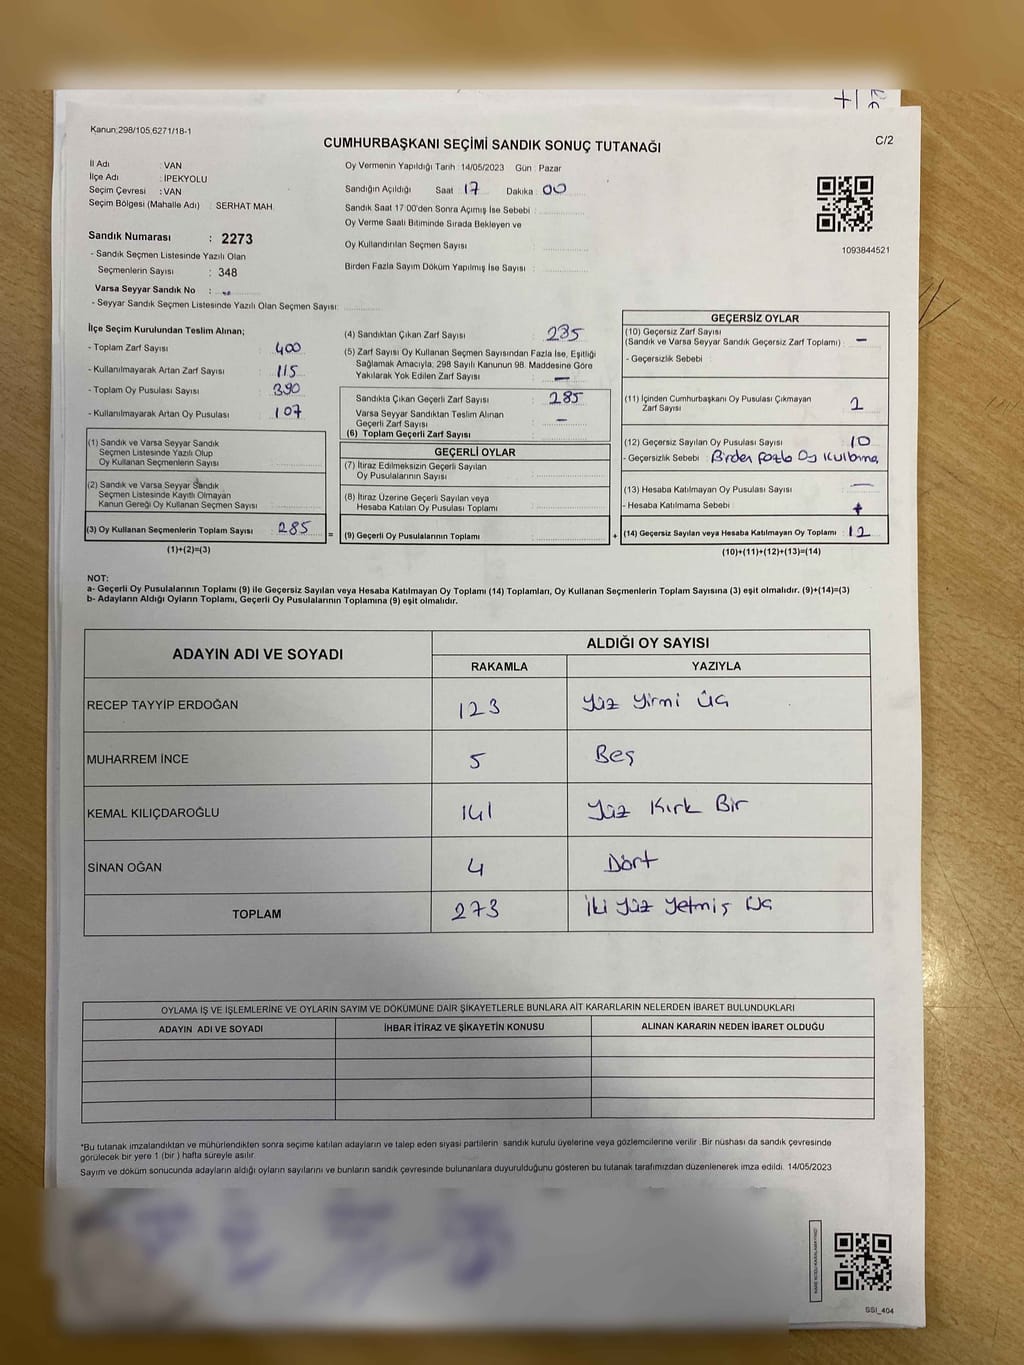 Kanun:298/105,6271/18-1
C/2
CUMHURBAŞKANI SEÇİMİ SANDIK SONUÇ TUTANAĞI
İl Adı : VAN
İlçe Adı : İPEKYOLU
Seçim Çevresi : VAN
Seçim Bölgesi (Mahalle Adı) : SERHAT MAH.
Sandık Numarası : 2273
- Sandık Seçmen Listesinde Yazılı Olan
Seçmenlerin Sayısı : 348
Varsa Seyyar Sandık No :
- Seyyar Sandık Seçmen Listesinde Yazılı Olan Seçmen Sayısı:
Oy Vermenin Yapıldığı Tarih :14/05/2023 Gün : Pazar
Sandığın Açıldığı Saat : 17 Dakika : 00
Sandık Saat 17:00'den Sonra Açımış İse Sebebi :
Oy Verme Saati Bitiminde Sırada Bekleyen ve
Oy Kullandırılan Seçmen Sayısı :
Birden Fazla Sayım Döküm Yapılmış İse Sayısı :
1093844521
İlçe Seçim Kurulundan Teslim Alınan;
- Toplam Zarf Sayısı : 400
- Kullanılmayarak Artan Zarf Sayısı : 115
- Toplam Oy Pusulası Sayısı : 390
- Kullanılmayarak Artan Oy Pusulası : 107
(1) Sandık ve Varsa Seyyar Sandık
Seçmen Listesinde Yazılı Olup
Oy Kullanan Seçmenlerin Sayısı :
(2) Sandık ve Varsa Seyyar Sandık
Seçmen Listesinde Kayıtlı Olmayan
Kanun Gereği Oy Kullanan Seçmen Sayısı :
(3) Oy Kullanan Seçmenlerin Toplam Sayısı : 285
(1)+(2)=(3)
=
(4) Sandıktan Çıkan Zarf Sayısı : 285
(5) Zarf Sayısı Oy Kullanan Seçmen Sayısından Fazla İse, Eşitliği
Sağlamak Amacıyla, 298 Sayılı Kanunun 98. Maddesine Göre
Yakılarak Yok Edilen Zarf Sayısı : —
Sandıkta Çıkan Geçerli Zarf Sayısı : 285
Varsa Seyyar Sandıktan Teslim Alınan
Geçerli Zarf Sayısı : —
(6) Toplam Geçerli Zarf Sayısı :
GEÇERLİ OYLAR
(7) İtiraz Edilmeksizin Geçerli Sayılan
Oy Pusulalarının Sayısı :
(8) İtiraz Üzerine Geçerli Sayılan veya
Hesaba Katılan Oy Pusulası Toplamı :
(9) Geçerli Oy Pusulalarının Toplamı :
+
GEÇERSİZ OYLAR
(10) Geçersiz Zarf Sayısı
(Sandık ve Varsa Seyyar Sandık Geçersiz Zarf Toplamı) : —
- Geçersizlik Sebebi :
(11) İçinden Cumhurbaşkanı Oy Pusulası Çıkmayan
Zarf Sayısı : 2
(12) Geçersiz Sayılan Oy Pusulası Sayısı : 10
- Geçersizlik Sebebi : Birden fazla Oy Kullanma
(13) Hesaba Katılmayan Oy Pusulası Sayısı : —
- Hesaba Katılmama Sebebi :
(14) Geçersiz Sayılan veya Hesaba Katılmayan Oy Toplamı : 12
(10)+(11)+(12)+(13)=(14)
NOT:
a- Geçerli Oy Pusulalarının Toplamı (9) ile Geçersiz Sayılan veya Hesaba Katılmayan Oy Toplamı (14) Toplamları, Oy Kullanan Seçmenlerin Toplam Sayısına (3) eşit olmalıdır. (9)+(14)=(3)
b- Adayların Aldığı Oyların Toplamı, Geçerli Oy Pusulalarının Toplamına (9) eşit olmalıdır.
ADAYIN ADI VE SOYADI ALDIĞI OY SAYISI
RAKAMLA YAZIYLA
RECEP TAYYİP ERDOĞAN 123 Yüz Yirmi Üç
MUHARREM İNCE 5 Beş
KEMAL KILIÇDAROĞLU 141 Yüz Kırk Bir
SİNAN OĞAN 4 Dört
TOPLAM 273 İki Yüz Yetmiş Üç
OYLAMA İŞ VE İŞLEMLERİNE VE OYLARIN SAYIM VE DÖKÜMÜNE DAİR ŞİKAYETLERLE BUNLARA AİT KARARLARIN NELERDEN İBARET BULUNDUKLARI
ADAYIN ADI VE SOYADI İHBAR İTİRAZ VE ŞİKAYETİN KONUSU ALINAN KARARIN NEDEN İBARET OLDUĞU
*Bu tutanak imzalandıktan ve mühürlendikten sonra seçime katılan adayların ve talep eden siyasi partilerin sandık kurulu üyelerine veya gözlemcilerine verilir. Bir nüshası da sandık çevresinde
görülecek bir yere 1 (bir ) hafta süreyle asılır.
Sayım ve döküm sonucunda adayların aldığı oyların sayılarını ve bunların sandık çevresinde bulunanlara duyurulduğunu gösteren bu tutanak tarafımızdan düzenlenerek imza edildi. 14/05/2023
SSI_404